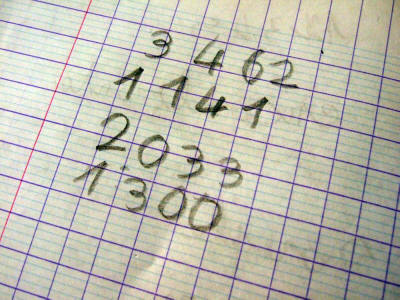 3 462
1 141
2033
1300